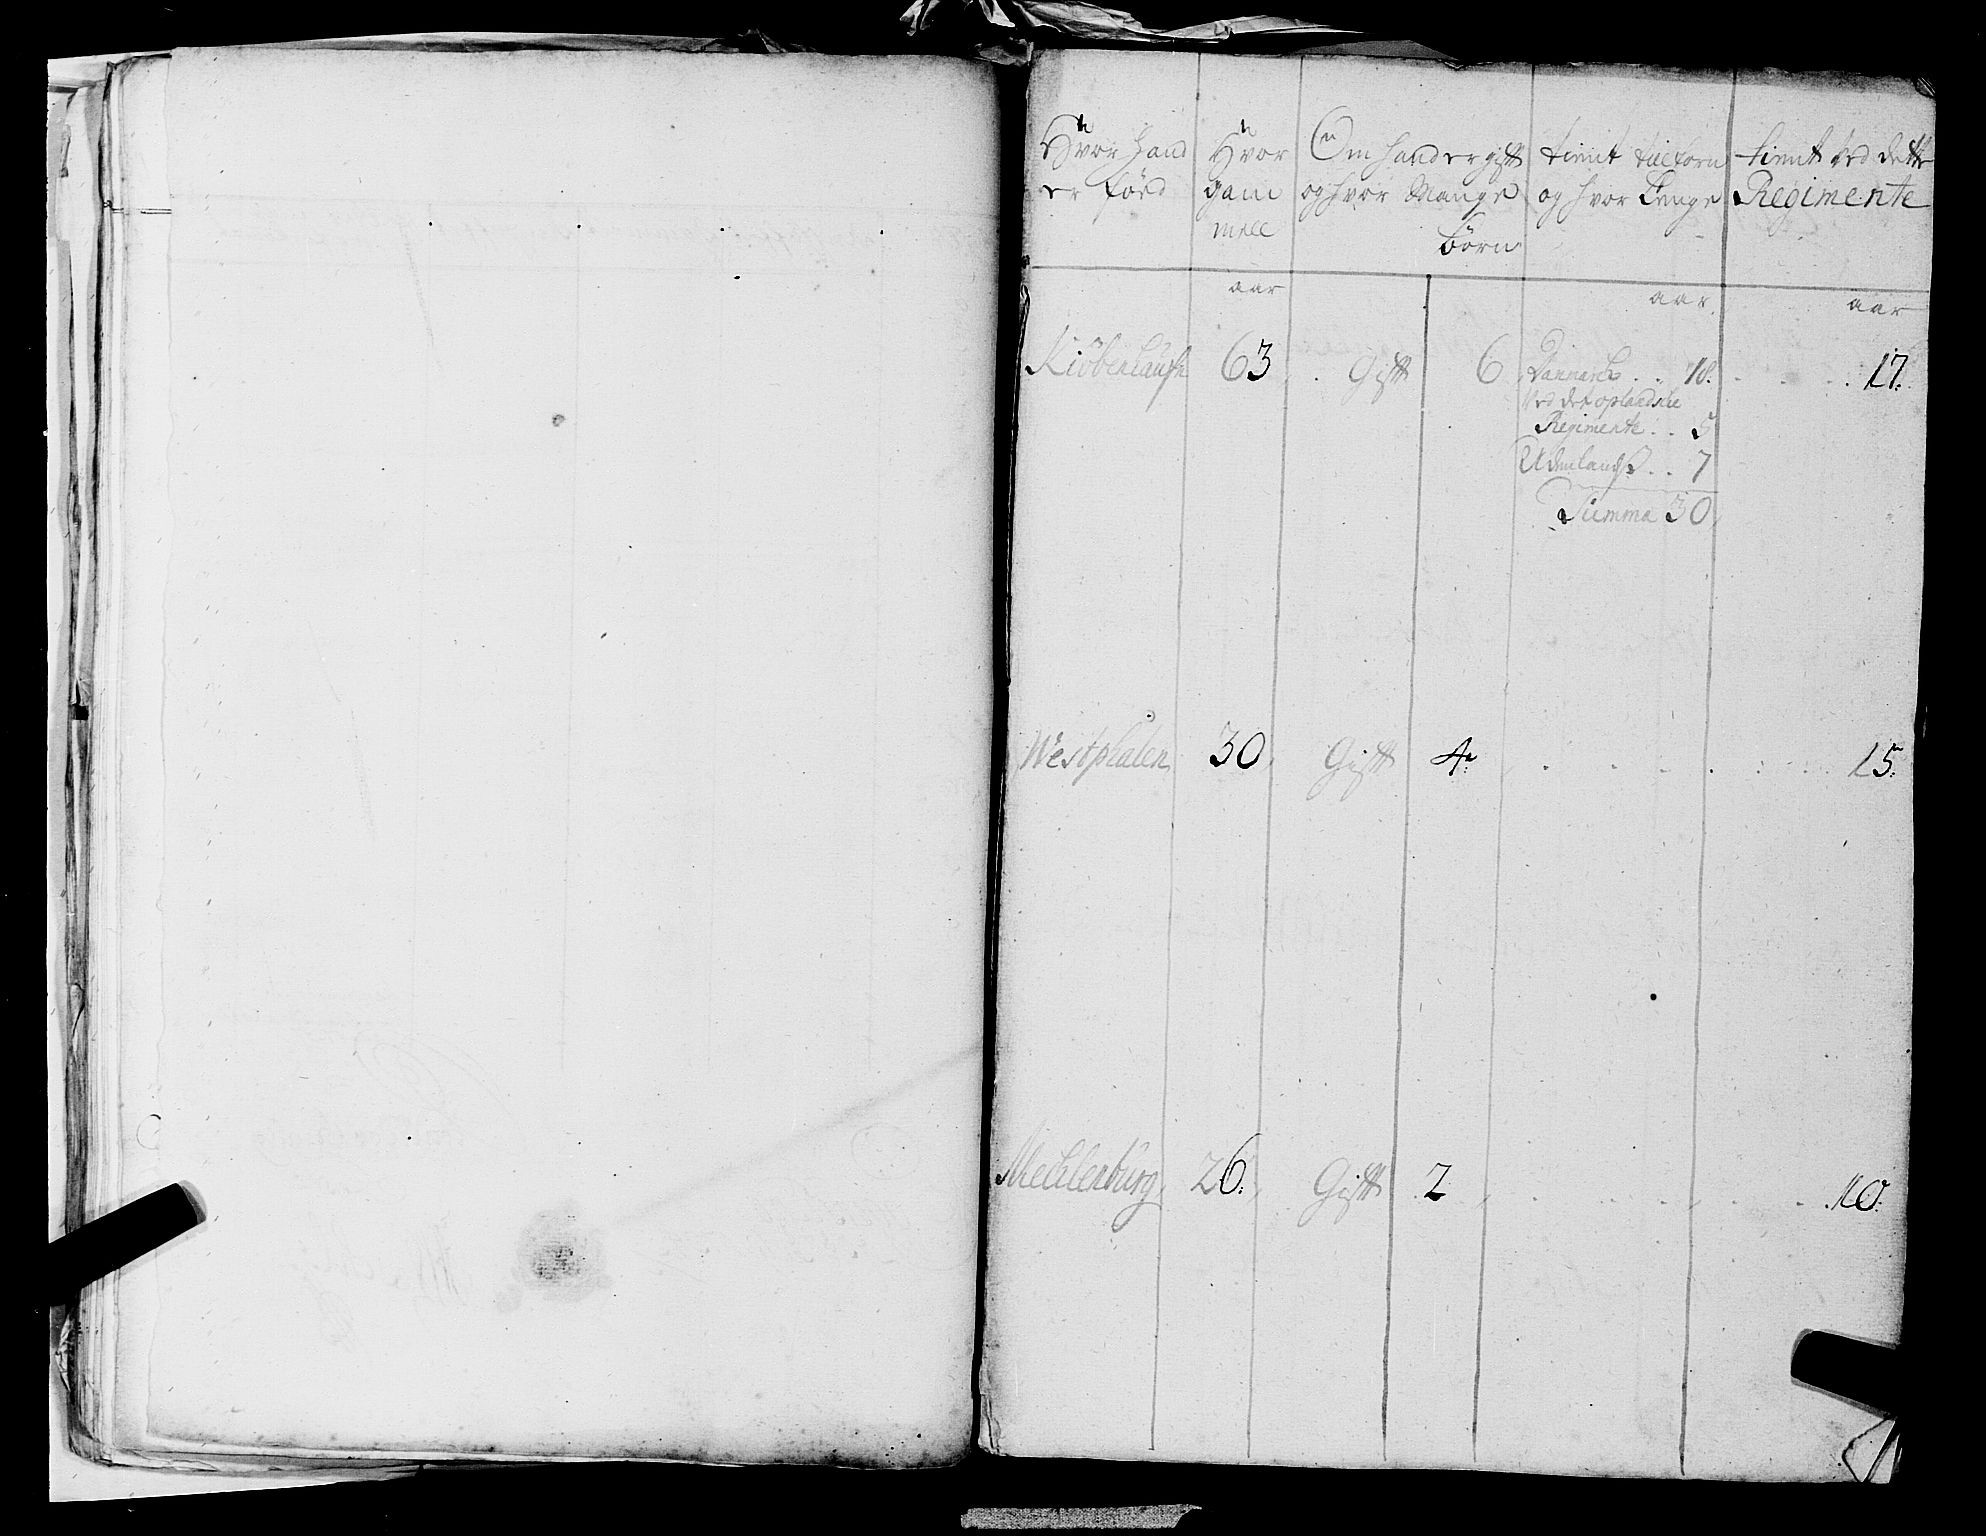 Hvor hand er föed | Hvor gam mell | Om hand er gifft og hvor Mange Börn | tient tilforn og hvor Lenge | tient ved dette Regimente
aar | aar | aar
Kiöbenhaufn 63 Gifft 6 Danmarck .. 18. 17.
ved det oplandske
Regimente .. 5
Udenlands .. 7
Summa 30
Westphalen 30 Gifft 4. 15.
Mecklenburg 26. Gifft 2 10.